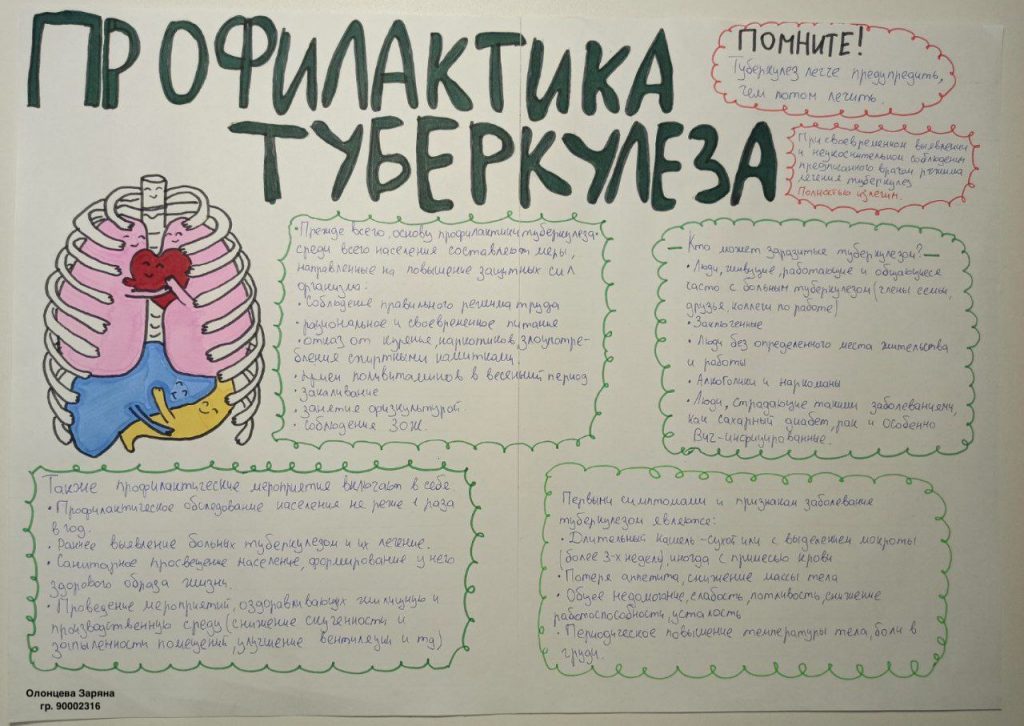 ПРОФИЛАКТИКА
ТУБЕРКУЛЕЗА
ПОМНИТЕ!
Туберкулез легче предупредить,
чем потом лечить.
При своевременном выявлении
и неукоснительном соблюдении
предписанного врачом режима
лечения туберкулез
Полностью излечим.
• Прежде всего, основу профилактики туберкулеза
среди всего населения составляют меры,
направленные на повышение защитных сил
организма:
• Соблюдение правильного режима труда
• рациональное и своевременное питание
• отказ от куренья, наркотиков, злоупотре-
бления спиртными напитками;
• приём поливитаминов в весенний период
• закаливание
• занятие физкультурой.
• Соблюдения ЗОЖ.
— Кто может заразится туберкулезом? —
• Люди, живущие, работающие и общающиеся
часто с больным туберкулезом (члены семьи,
друзья, коллеги по работе)
• Заключенные
• Люди без определенного места жительства
и работы
• Алкоголики и наркоманы
• Люди, страдающие такими заболеваниями,
как сахарный диабет, рак и особенно
Вич-инфицированные.
Также профилактические мероприятия включают в себя
• Профилактическое обследование населения не реже 1 раза
в год.
• Раннее выявление больных туберкулезом и их лечение.
• Санитарное просвещение население, формирование у него
здорового образа жизни.
• Проведение мероприятий, оздоравливающих жилищную и
производственную среду (снижение скученности и
запыленности помещений, улучшение вентиляции и тд)
Первыми симптомами и признакам заболевание
туберкулезом являются:
• Длительный кашель - сухой или с выделением мокроты
(более 3-х недель), иногда с примесью крови
• Потеря аппетита, снижение массы тела
• Общее недомогание, слабость, потливость, снижение
работоспособности, усталость
• Периодическое повышение температуры тела, боли в
груди.
Олонцева Заряна
гр. 90002316